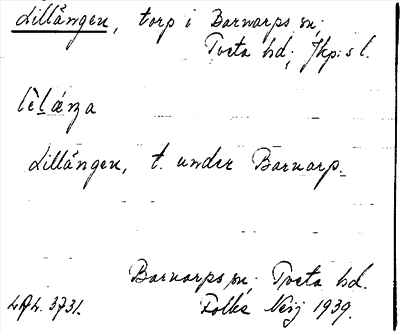 Lillängen, torp i Barnarps sn;
Tveta hd; Jkp:s l.
Lillängen, t. under Barnarp.
Barnarps sn; Tveta hd.
3731. Folke Neij 1939.